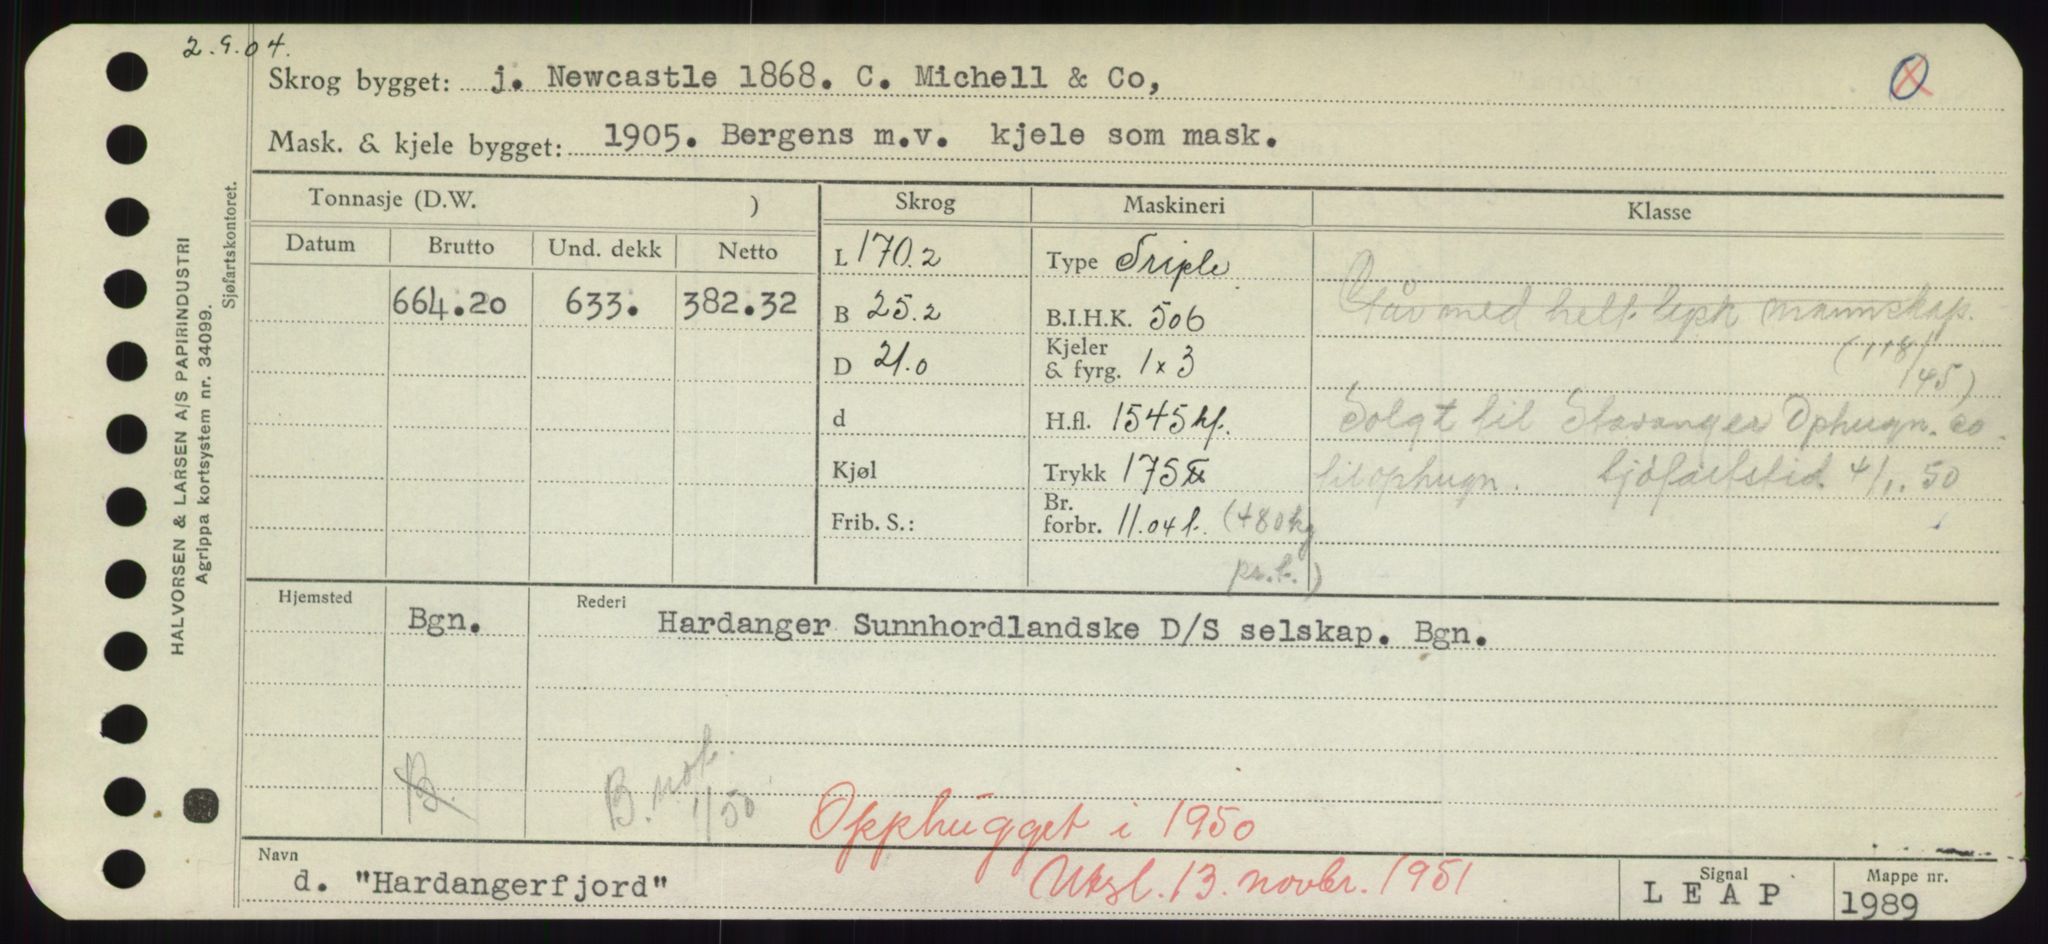 2.9.04.
Skrog bygget: j. Newcastle 1868. C. Michell & Co,
Mask. & kjele bygget: 1905. Bergens m.v. kjele som mask.
Tonnasje (D.W. ) Skrog Maskineri Klasse
Datum Brutto Und. dekk Netto
664.20 633. 382.32
L 170.2
B 25.2
D 21.0
d
Kjøl
Frib. S.:
Type Triple
B.I.H.K. 506
Kjeler & fyrg. 1 x 3
H.fl. 1545 hf.
Trykk 175 ℔
Br. forbr. 11.04 t. (480 kg
pr. t.)
med helt mannskap.
(118/45)
Solgt til Stavanger Ophugn. co.
til ophugn. Sjöfartstid. 4/1. 50
Hjemsted Rederi
Bgn. Hardanger Sunnhordlandske D/S selskap. Bgn.
B. B. not. 1/50
Opphugget i 1950
Utsl. 13. novbr. 1951
Navn
d. "Hardangerfjord"
Signal
LEAP
Mappe nr.
1989
HALVORSEN & LARSEN A/S PAPIRINDUSTRI
Agrippa kortsystem nr. 34099.
Sjøfartskontoret.